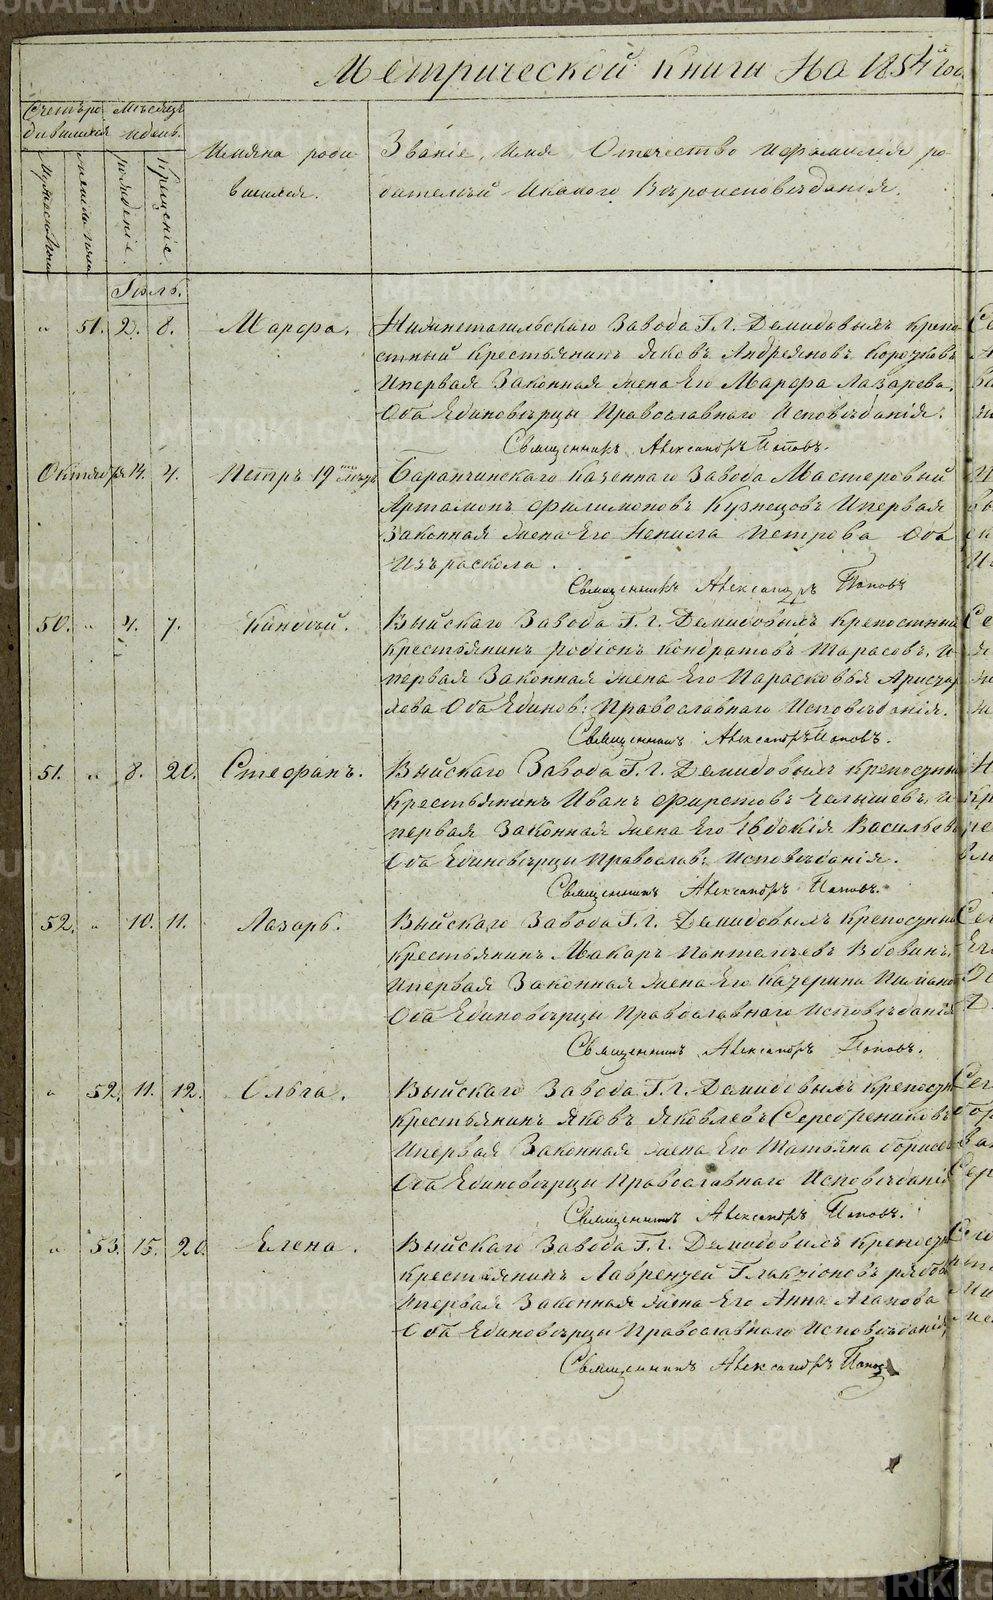 Метрической книги на 1854й год
Счетъ ро-
дившихся
Мѣсяцъ
и день.
Имяна роди
вшихся.
Званіе, имя Отечество и фамилія ро-
дителей и какого Вѣроисповѣданія.
мужеска пола
женска пола
рожденіе.
крещеніе.
Іюль.
" 51. 2. 8. Марфа. Нижнетагильскаго Завода Г.г. Демидовыхъ крепо-
стный крестьянинъ Яковъ Андреяновъ
и первая Законная жена Его Марфа Лазарева.
Оба Единовѣрцы Православнаго Исповѣданія.
Священникъ Александръ Поповъ.
Октября 14. 4. Петръ 19 Баранчинскаго Казеннаго Завода Мастеровый
Артамонъ Филимоновъ Кузнецовъ и первая
Законная жена Его Ненила Петрова Оба
Изъ раскола.
Священникъ Александръ Поповъ
50. " 4. 7. Выйскаго Завода Г.г. Демидовыхъ крепостный
крестьянинъ Родіонъ Кондратовъ Тарасовъ, и
первая Законная жена Его Парасковья
Оба Единов: Православнаго Исповѣданія.
Священникъ Александръ Поповъ.
51. " 8. 20. Стефанъ. Выйскаго Завода Г.г. Демидовыхъ крепостны
крестьянинъ Иванъ Фирстовъ Челышевъ, и
первая Законная жена Его Евдокія Васильева
Оба Единовѣрцы Православ: Исповѣданія.
Священникъ Александръ Поповъ.
52. " 10. 11. Лазарь. Выйскаго Завода Г.г. Демидовыхъ крепостны
крестьянинъ Макаръ Пантелѣевъ Вдовинъ,
и первая Законная жена Его Катерина
Оба Единовѣрцы Православнаго Исповѣданія
Священникъ Александръ Поповъ.
" 52. 11. 12. Ольга. Выйскаго Завода Г.г. Демидовыхъ крепостн
крестьянинъ Яковъ Яковлевъ Серебрениковъ
и первая Законная жена Его Татьяна Борисов
Оба Единовѣрцы Православнаго Исповѣданія
Священникъ Александръ Поповъ.
" 53. 15. 20. Елена. Выйскаго Завода Г.г. Демидовыхъ крепостн
крестьянинъ Лаврентей
и первая Законная жена Его Анна Агапова
Оба Единовѣрцы Православнаго Исповѣданія,
Священникъ Александръ Попов
METRIKI.GASO-URAL.RU